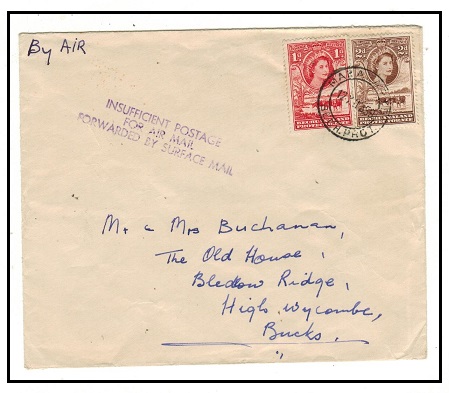 By Air
INSUFFICIENT POSTAGE
FOR AIR MAIL
FORWARDED BY SURFACE MAIL
1D 1D
BECHUANALAND
PROTECTORATE
2D 2D
BECHUANALAND
PROTECTORATE
Mr & Mrs Buchanan,
The Old House,
Bledlow Ridge,
High Wycombe,
Bucks.